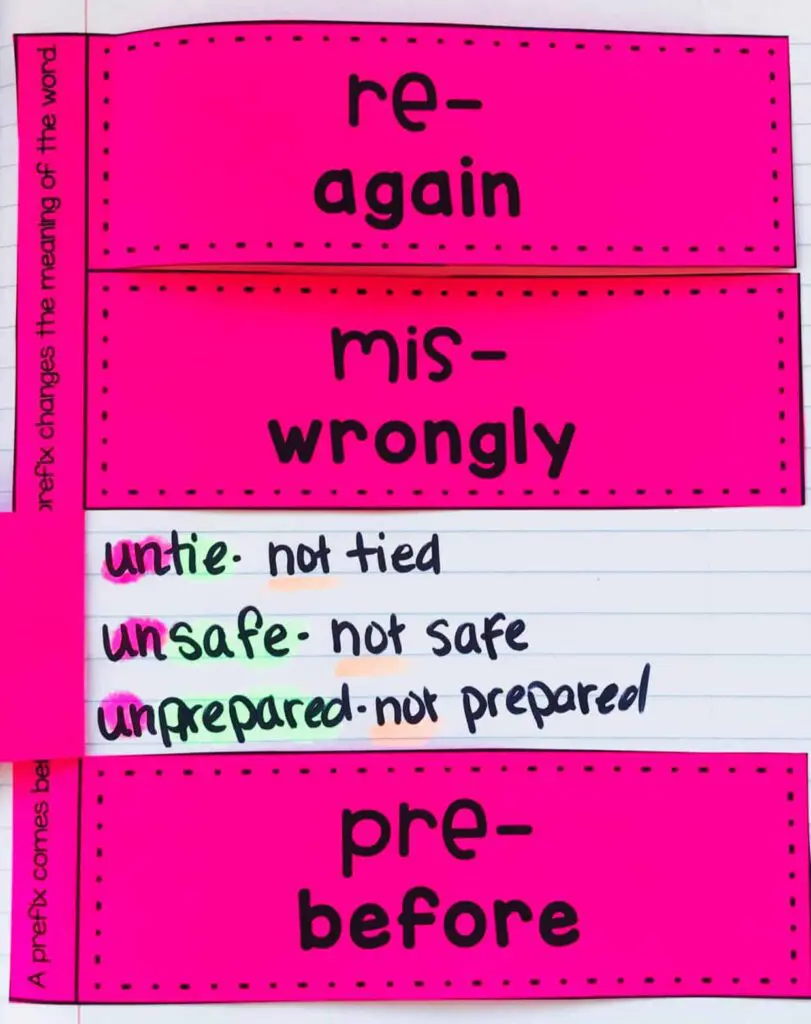 re-
again
mis-
wrongly
untie- not tied
unsafe- not safe
unprepared- not prepared
pre-
before
A prefix comes
prefix changes the meaning of the word.